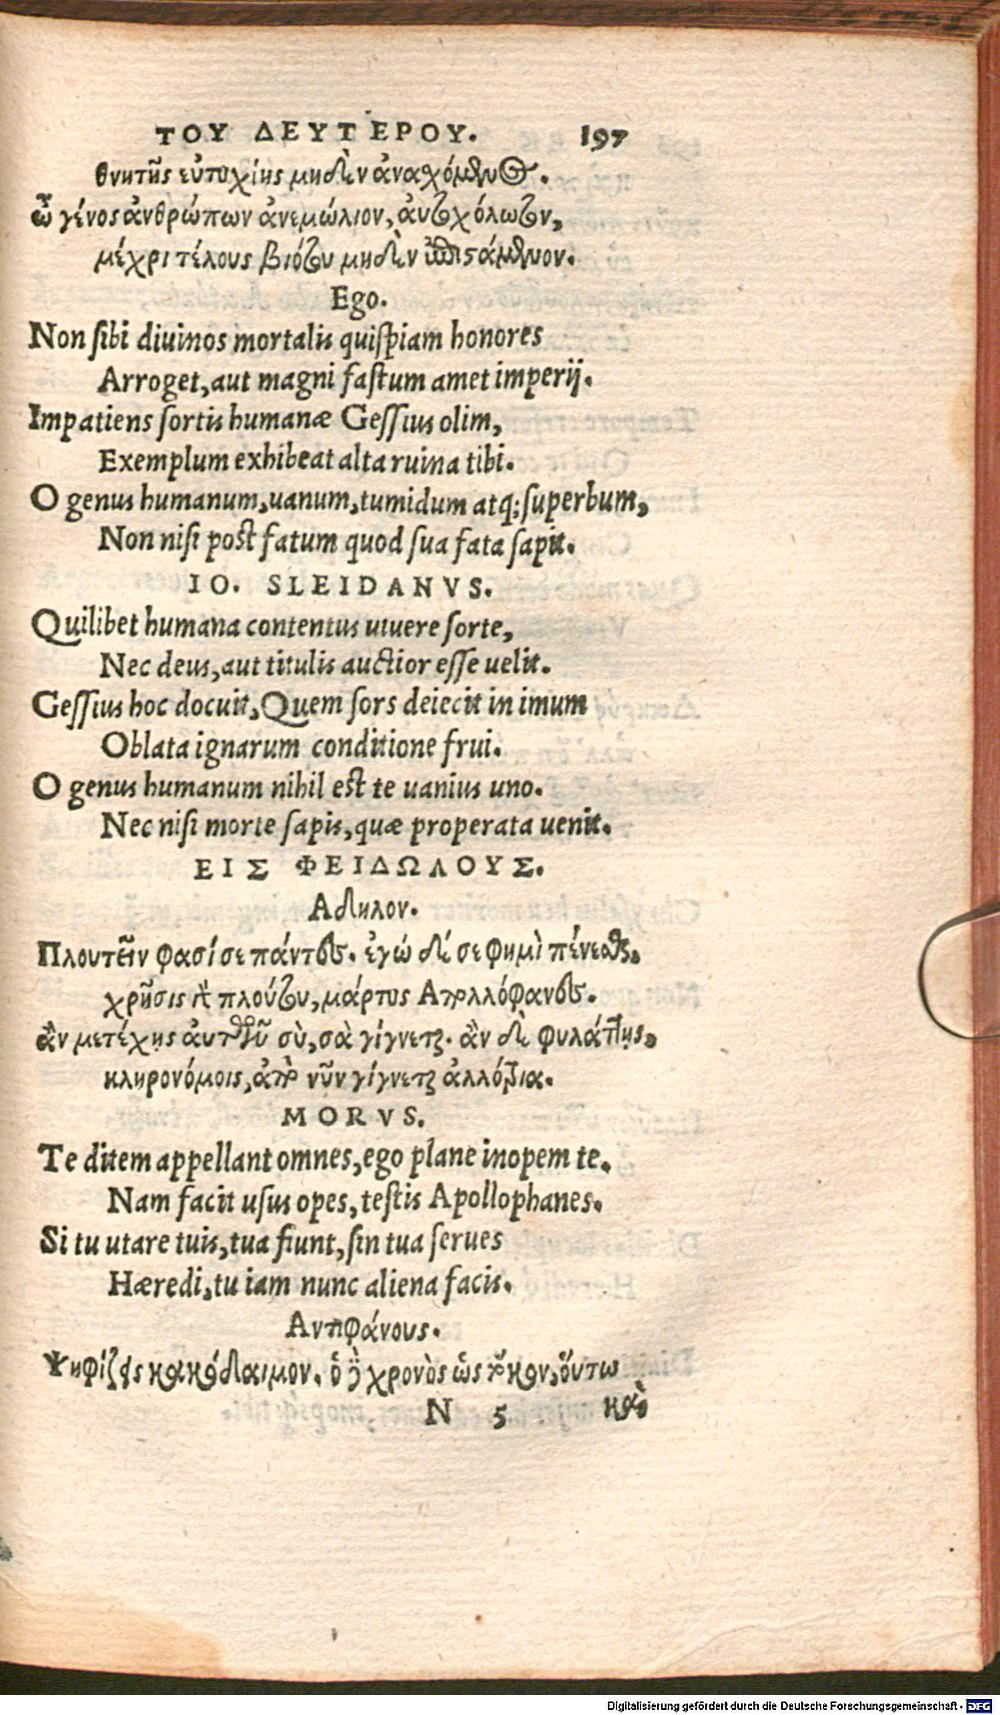 ΤΟΥ ΔΕΥΤΕΡΟΥ. 197
θνητῆς εὐτυχίης μηδὲν ἀναχόμενος.
ὦ γένος ἀνθρώπων ἀνεμώλιον, αὐτοχόλωτον,
μέχρι τέλους βιότου μηδὲν ἐπιστάμενον.
Ego.
Non sibi diuinos mortalis quispiam honores
Arroget, aut magni fastum amet imperij.
Impatiens sortis humanæ Gessius olim,
Exemplum exhibeat alta ruina tibi.
O genus humanum, uanum, tumidum atq; superbum,
Non nisi post fatum quod sua fata sapit.
IO. SLEIDANVS.
Quilibet humana contentus uiuere sorte,
Nec deus, aut titulis auctior esse uelit.
Gessius hoc docuit, Quem sors deiecit in imum
Oblata ignarum conditione frui.
O genus humanum nihil est te uanius uno.
Nec nisi morte sapis, quæ properata uenit.
ΕΙΣ ΦΕΙΔΩΛΟΥΣ.
Αδηλον.
Πλουτεῖν φασί σε πάντες. ἐγὼ δέ σε φημὶ πένεσθαι.
χρῆσις γὰρ πλούτου, μάρτυς Απολλόφανες.
ἂν μετέχῃς αὐτοῦ σὺ, σὰ γίγνεται. ἂν δὲ φυλάττῃς.
κληρονόμοις, ἀπὸ νῦν γίγνεται ἀλλότρια.
MORVS.
Te ditem appellant omnes, ego plane inopem te.
Nam facit usus opes, testis Apollophanes.
Si tu utare tuis, tua fiunt, sin tua serues
Hæredi, tu iam nunc aliena facis.
Αντιφάνους.
Ψηφίζεις κακόδαιμον. ὁ δὲ χρονὸς ὡς τόκον, ὅυτω
N 5 καὶ
Digitalisierung gefördert durch die Deutsche Forschungsgemeinschaft - DFG